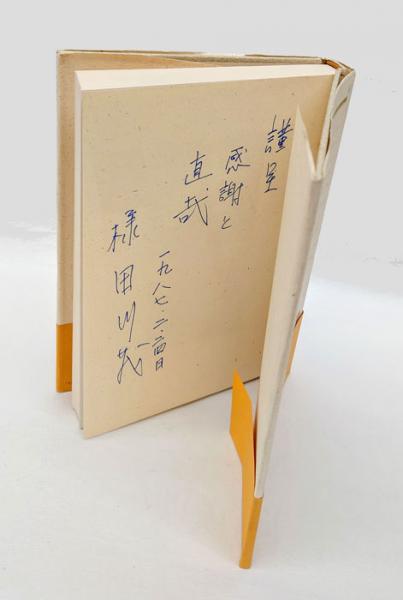 謹呈
感謝と
直哉
一九八七.二.二四日
様田川